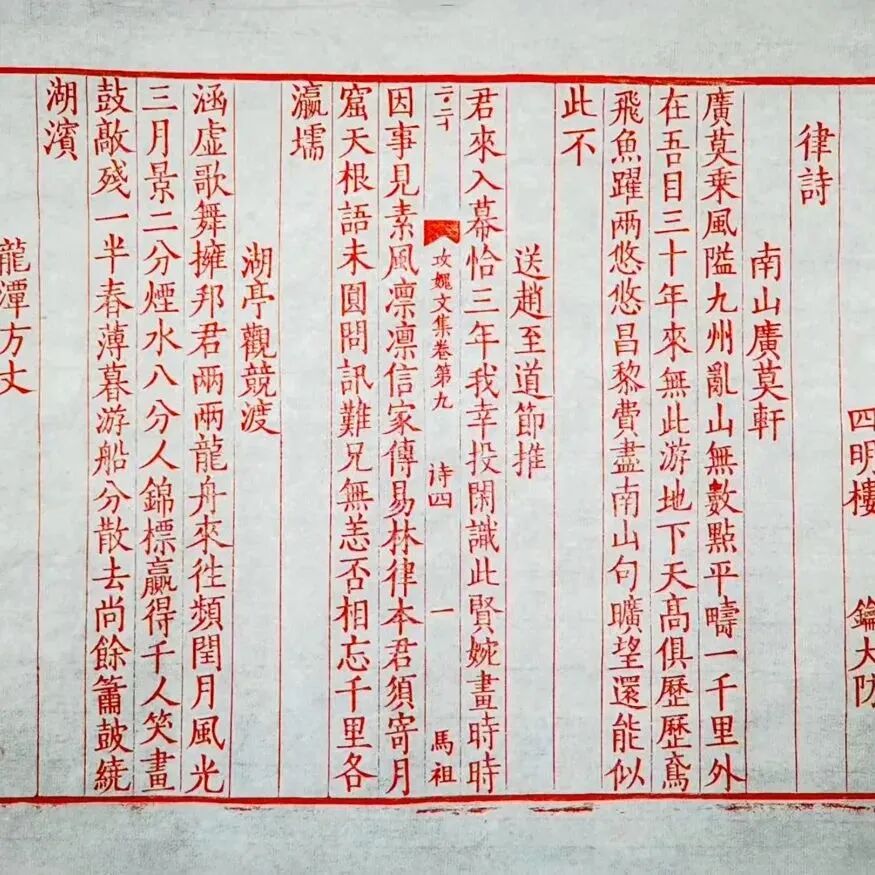 四明樓 鑰大防
律詩
南山廣莫軒
廣莫乘風隘九州亂山無數點平疇一千里外
在吾目三十年來無此游地下天高俱歷歷鳶
飛魚躍兩悠悠昌黎費盡南山句曠望還能似
此不
送趙至道節推
君來入幕恰三年我幸投閑識此賢婉畫時時
攻媿文集卷第九 诗四 一 馬祖
因事見素風凛凛信家傳易林律本君須寄月
窟天根語未圓問訊難兄無恙否相忘千里各
瀛壖
湖亭觀競渡
涵虛歌舞擁邦君兩兩龍舟來徃頻閏月風光
三月景二分煙水八分人錦標贏得千人笑畫
鼓敲殘一半春薄暮游船分散去尚餘簫鼓繞
湖濱
龍潭方丈